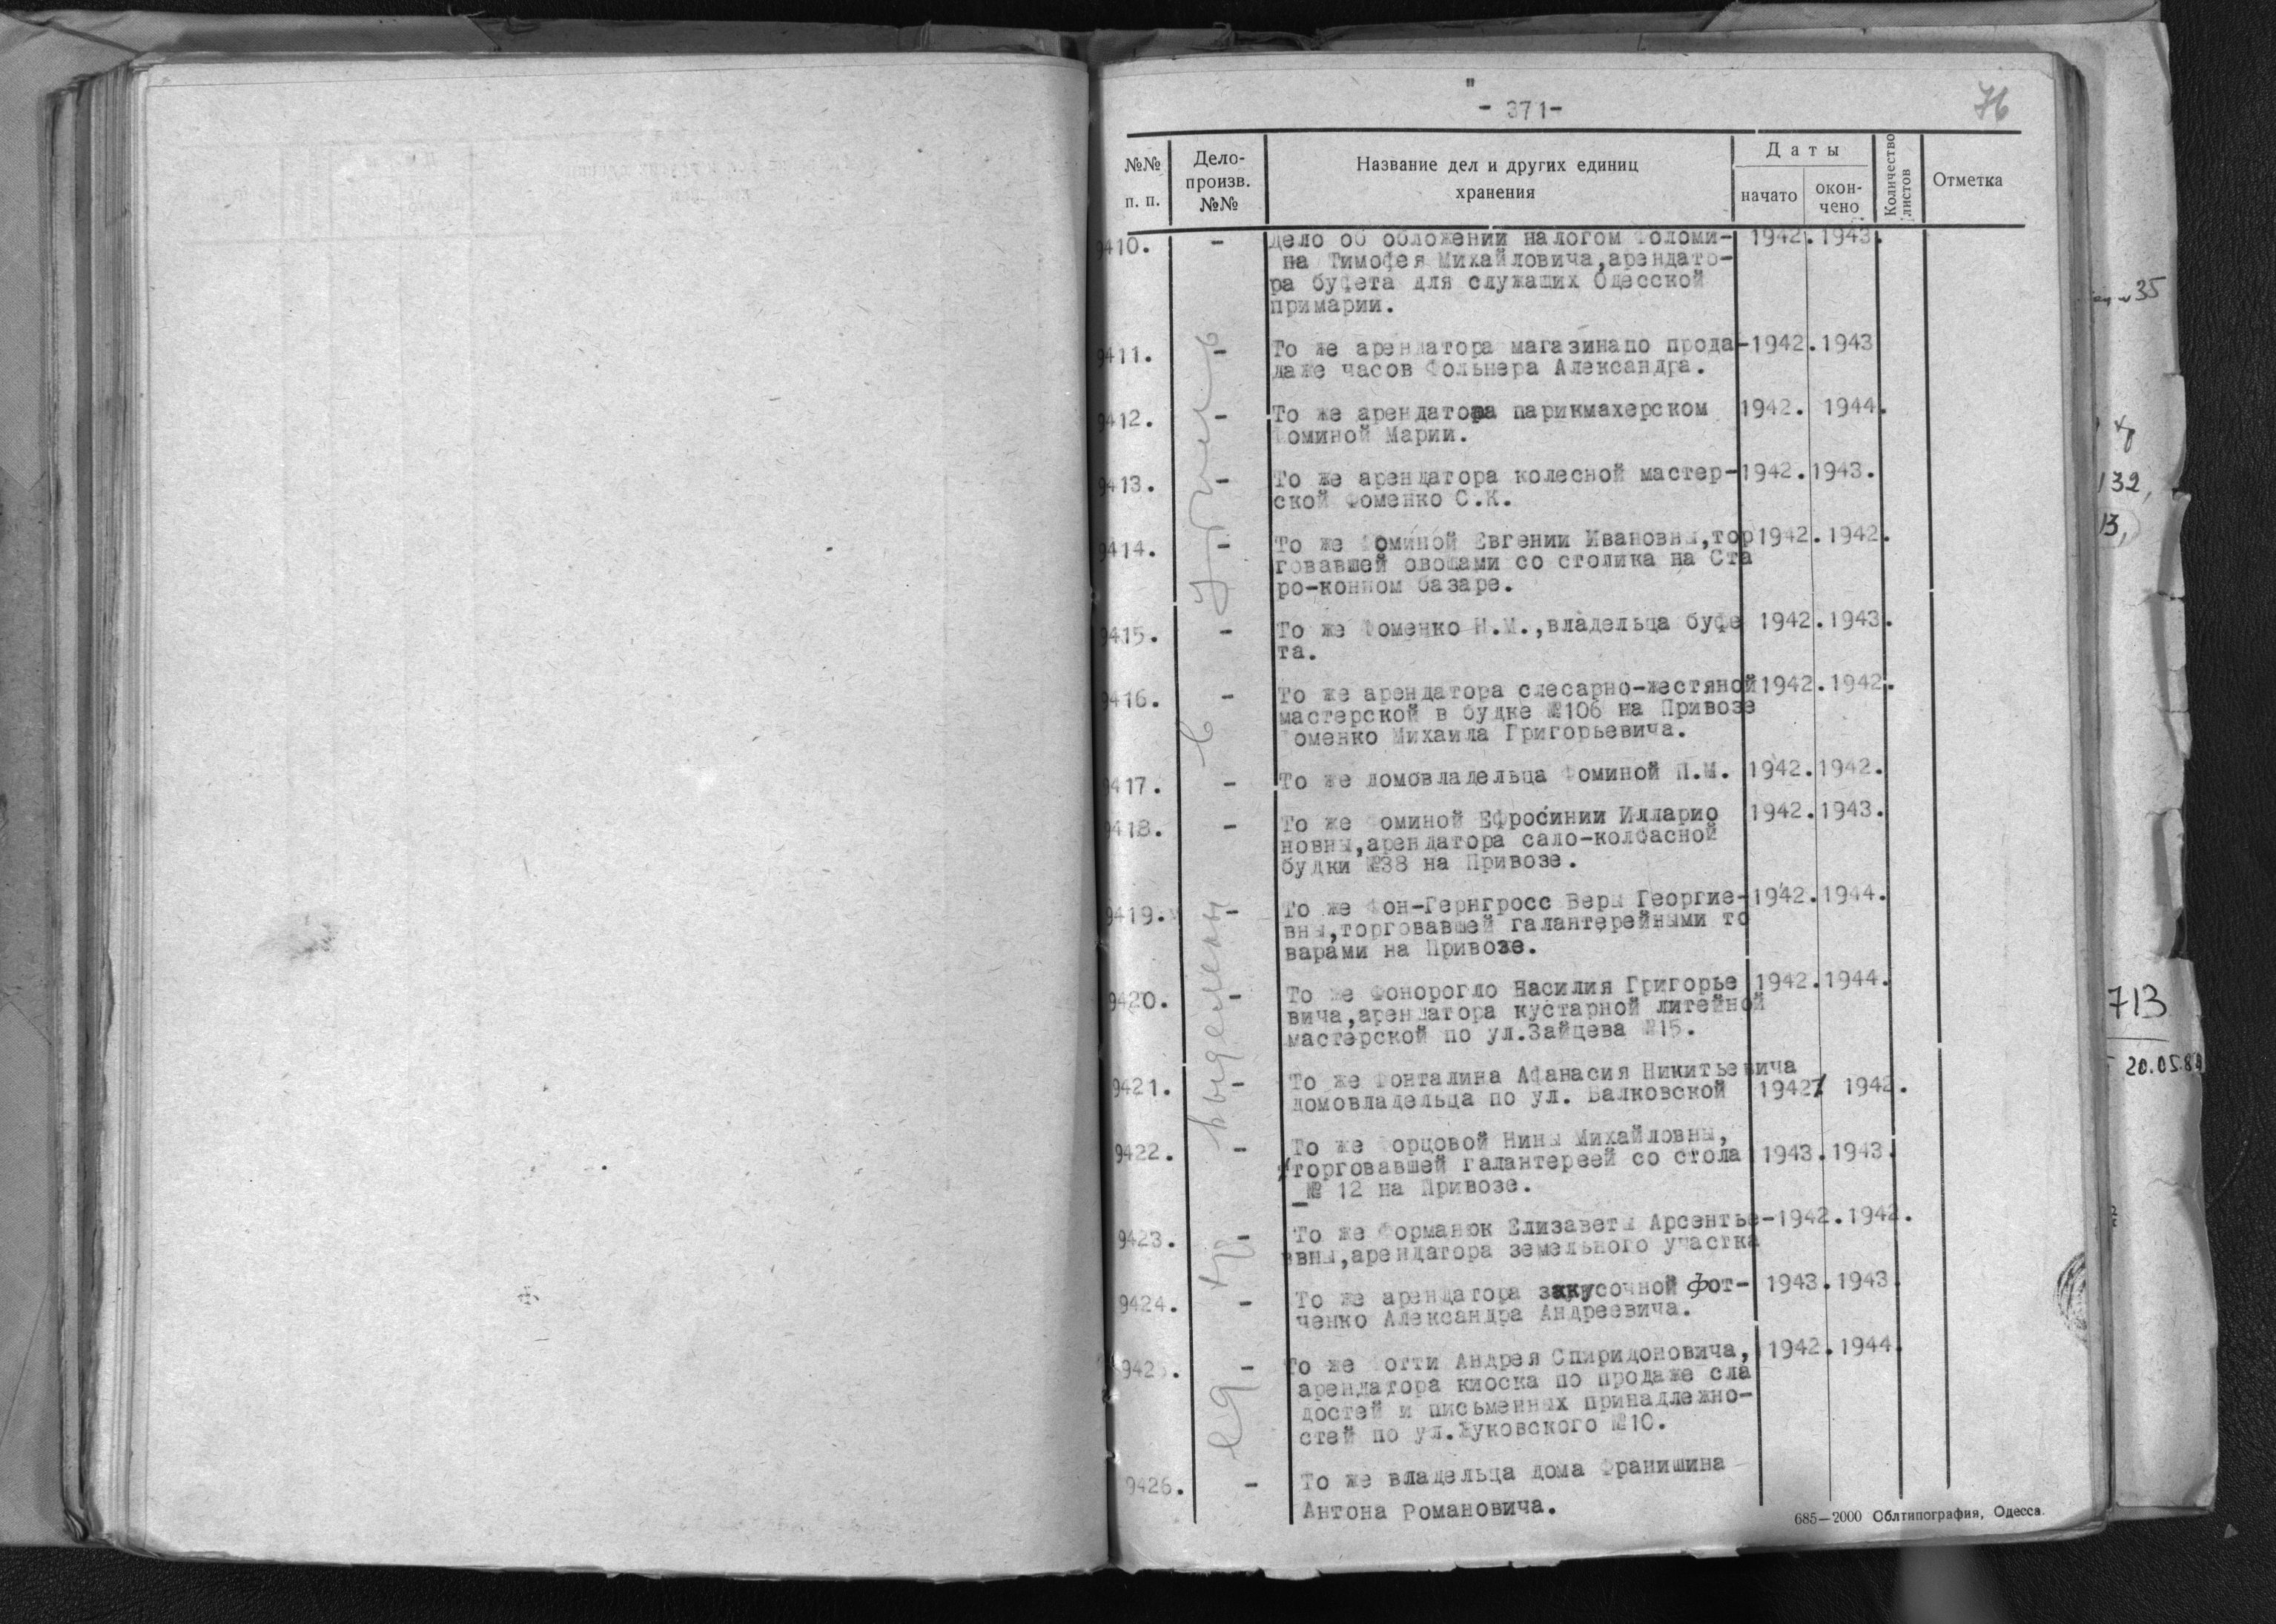 "
- 371-
76
№№ п. п.
Дело-произв. №№
Название дел и других единиц хранения
Даты
начато
окон-чено
Количество листов
Отметка
9410. - Дело об обложении налогом Фоломи- 1942. 1943.
на Тимофея Михайловича,арендато-
ра буфета для служащих Одесской
примарии.
9411. - То же арендатора магазинапо прода-1942.1943
даже часов Фольмера Александра.
9412. - То же арендатора парикмахерском 1942. 1944.
Фоминой Марии.
9413. - То же арендатора колесной мастер-1942.1943.
ской Фоменко С.К.
9414. - То же Фоминой Евгении Ивановны,тор1942.1942.
говавшей овощами со столика на Ста
ро-конном базаре.
9415. - То же Фоменко Н.М.,владельца буфе 1942.1943.
та.
9416. - То же арендатора слесарно-жестяной1942.1942.
мастерской в будке №106 на Привозе
Фоменко Михаила Григорьевича.
9417. - То же домовладельца Фоминой П.М. 1942.1942.
9418. - То же Фоминой Ефросинии Илларио 1942.1943.
новны,арендатора сало-колбасной
будки №38 на Привозе.
9419. - То же Фон-Гернгросс Веры Георгие-1942.1944.
вны,торговавшей галантерейными то
варами на Привозе.
9420. - То же Фонорогло Василия Григорье 1942.1944.
вича,арендатора кустарной литейной
мастерской по ул.Зайцева №15.
9421. - То же Фонталина Афанасия Никитьевича
домовладельца по ул. Балковской 1942/ 1942.
9422. - То же Форцовой Нины Михайловны,
торговавшей галантереей со стола 1943.1943.
№ 12 на Привозе.
9423. - То же Форманюк Елизаветы Арсентье-1942.1942.
ввны,арендатора земельного участка
9424. - То же арендатора закусочной Фот- 1943.1943.
ченко Александра Андреевича.
9425. - То же Фотти Андрея Спиридоновича, 1942.1944.
арендатора киоска по продаже сла
достей и письменных принадлежно-
стей по ул.Жуковского №10.
9426. - То же владельца дома Франишина
Антона Романовича.
685—2000 Облтипография, Одесса.
35
132,
13,
713
20.05.8